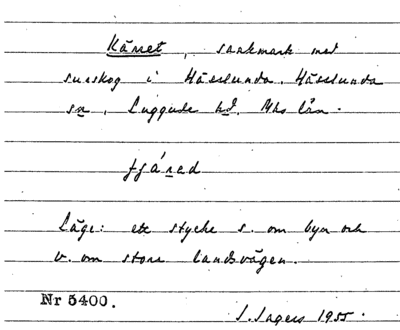 Kärret, sankmark med
surskog i Hässlunda. Hässlunda
sn, Luggude hd. Mhs län.
Läge: ett stycke s. om byn och
v. om stora landsvägen.
Nr 5400.
S. Ingers 1955.